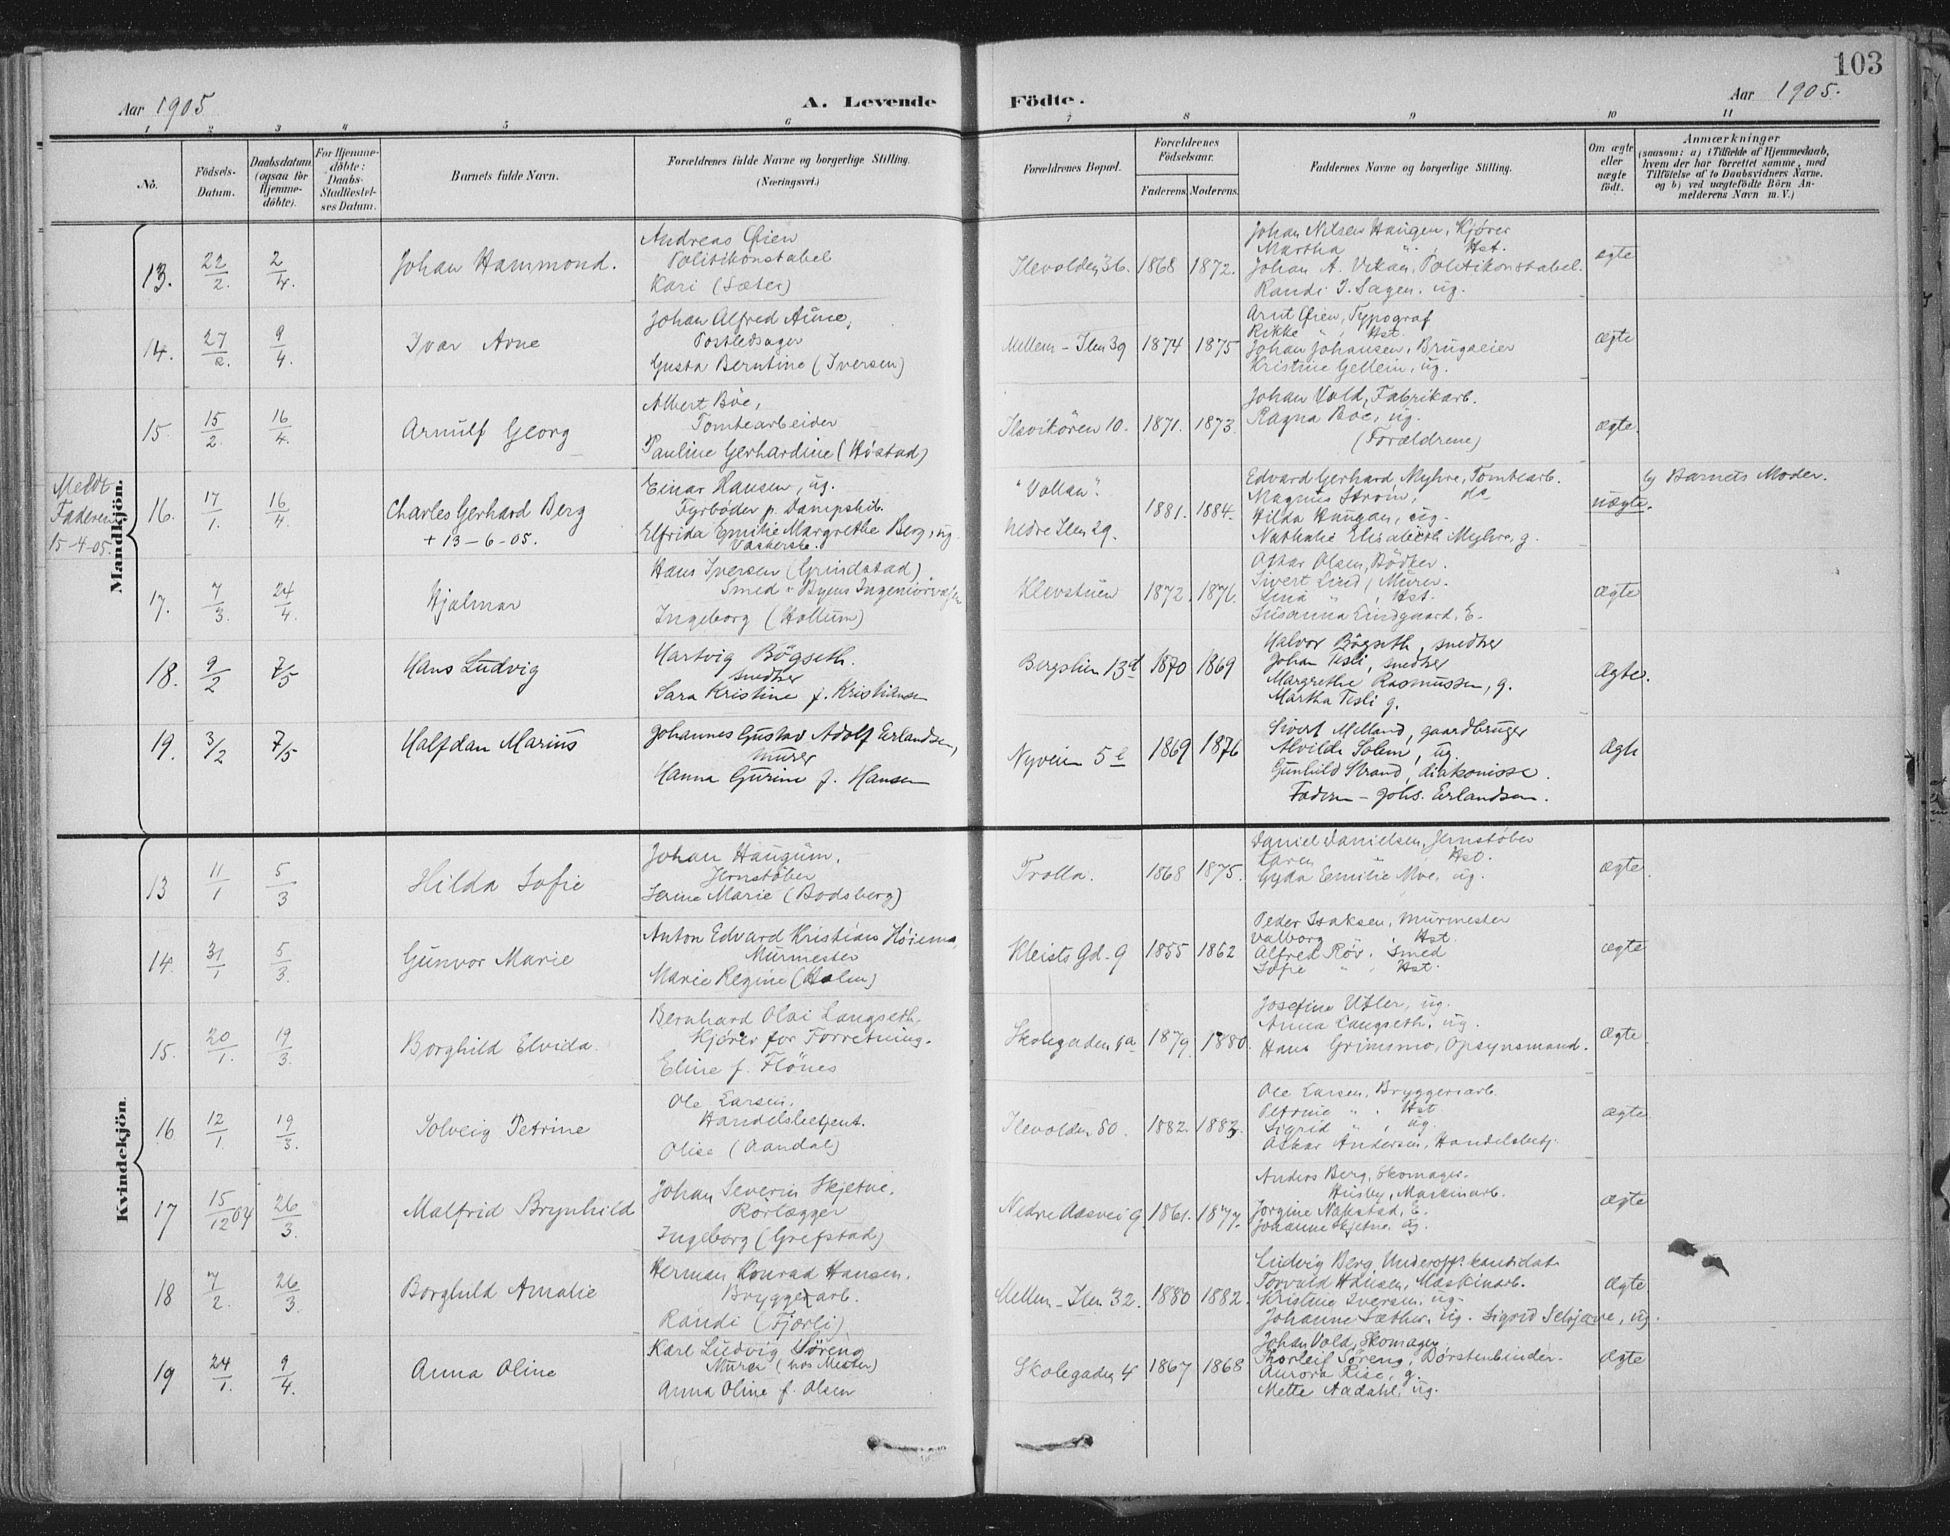 103
Aar 1905 A. Levende Födte. Aar 1905.
1 2 3 4 5 6 7 8 9 10 11
No.
Födsels-
Datum.
Daabsdatum
(ogsaa for
Hjemme-
döbte).
For Hjemme-
döbte:
Daabs-
Stadfæstel-
ses Datum.
Barnets fulde Navn.
Forældrenes fulde Navne og borgerlige Stilling.
(Næringsvei.)
Forældrenes Bopæl.
Forældrenes
Födselsaar.
Faderens. Moderens.
Faddernes Navne og borgerlige Stilling.
Om ægte
eller
uægte
født.
Anmærkninger
(saasom: a) i Tilfælde af Hjemmedaab,
hvem der har forrettet samme, med
Tilföielse af to Daabsvidners Navne.
og b) ved uægtefödte Börn An-
melderens Navn m. V.)
Mandkjön.
13. 22/2. 2/4. Johan Hammond.
Andreas Øien
Politikonstabel
Kari (Sæter)
Ilevolden 36. 1868 1872.
Johan Nilsen Haugen, Kjörer
Martha " , Hst.
Johan A. Vikan, Politikonstabel.
Randi J. Sagen. ug.
ægte
14. 27/2. 9/4. Ivar Arne
Johan Alfred Aune,
Postledsager
Gusta Berntine (Iversen)
Mellem-Ilen 39 1874 1875
Arnt Øien, Typograf
Rikke " , Hst.
Johan Johansen, Brugseier
Kristine Gellein, ug.
ægte
15. 15/2. 16/4. Arnulf Georg
Albert Böe,
Tomtearbeider
Pauline Gerhardine (Høstad)
Ilsvikören 10. 1871. 1873.
Johan Vold, Fabrikarb.
Ragna Böe, ug.
(Forældrene)
ægte.
Meldt
Faderen
15-4-05.
16. 17/1. 16/4. Charles Gerhard Berg
+ 13-6-05.
Einar Hansen, ug.
Fyrbøder p. Dampskib.
Elfrida Emilie Margrethe Berg, ug
Vaskerske.
"Vollan".
Nedre Ilen 29. 1881. 1884.
Edvard Gerhard Myhre, Tomtearb.
Magnus Strøm, do
Hilda Haugan, ug.
Nathalie Elisabeth Myhre, g.
uægte.
b) Barnets Moder.
17. 7/3. 24/4. Hjalmar
Hans Iversen (Grindstad)
Smed v. Byens Ingeniörvæsen
Ingeborg (Hollum)
Klevstuen 1872. 1876.
Oskar Olsen, Bödker.
Sivert Lind, Murer.
Lina " , Hst.
Susanna Lindgaard, E.
ægte
18. 9/2 7/5 Hans Ludvig
Hartvig Bögseth.
snedker
Sara Kristine f. Kristiansen
Bergslien 13d 1870 1869
Halvor Bögseth, snedker
Johan Tesli, snedker
Margrethe Rasmussen, g.
Martha Tesli g.
Ægte.
19. 3/2 7/5 Halfdan Marius
Johannes Gustav Adolf Erlandsen,
murer
Hanna Gurine f. Hansen
Nyveien 5b 1869 1876
Sivert Melland, gaardbruger
Alvilde Solem, ug.
Gunhild Strand, diakonisse.
Faderen - Johs. Erlandsen.
Ægte
Kvindekjön.
13 11/1 5/3 Hilda Sofie
Johan Haugum,
Jernstøber
Serine Marie (Bodsberg)
Trolla. 1868 1875.
Daniel Danielsen, Jernstøber
Karen Hst.
Gyda Emilie Moe, ug.
ægte.
14. 31/1 5/3. Gunvor Marie
Anton Edvard Kristian Höiem,
Murmester
Marie Regine (Holm)
Kleists Gd. 9 1855 1862
Peder Isaksen, Murmester
Valborg " , Hst.
Alfred Röv. Smed
Sofie " , Hst.
ægte
15. 20/1. 19/3. Borghild Elvida.
Bernhard Olai Langseth,
Kjörer for Forretning.
Eline f. Flönes
Skolegaden 9a 1879 1880.
Josefine Utler, ug.
Anna Langseth, ug.
Hans Grimsmo, Opsynsmand.
ægte
16 12/1. 19/3. Solveig Petrine
Ole Larsen,
Handelsbetjent.
Olise (Aandal)
Ilevolden 80. 1882. 1883.
Ole Larsen, Bryggeriarb.
Petrine " , Hst.
Sigrid " , ug.
Oskar Andersen, Handelsbetj.
ægte
17 15/12 04 26/3. Malfrid Brynhild
Johan Severin Skjetne.
Rörlægger
Ingeborg (Grefstad)
Nedre Aasvei 9 1861. 1877.
Anders Berg, Skomager.
Husby, Maskinarb.
Jorgine Napstad, E.
Johanne Skjetne, ug.
ægte
18 7/2. 26/3. Borghild Amalie
Herman Konrad Hansen.
Bryggeriarb.
Randi (Fjorli)
Mellem-Ilen 32. 1880 1882.
Ludvig Berg, Underoff. kandidat
Torvald Hansen, Maskinarb.
Kristine Iversen, ug.
Johanne Sæther, ug. Sigrid Selsjære, ug.
ægte
19 24/1. 9/4. Anna Oline
Karl Ludvig Söreng
Murer (hos Mester)
Anna Oline f. Olsen
Skolegaden 4 1867 1868
Johan Vold, Skomager
Thorleif Söreng, Börstenbinder.
Aurora Rise, g.
Mette Aadahl, ug.
ægte